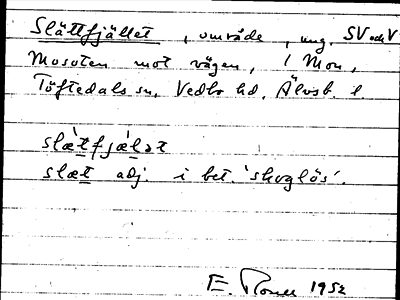 Slättfjället, område, ung. SV och V
Mosoten mot vägen, i Mon,
Töftedals sn, Vedbo hd, Älvsb. l.
slæ̀tfjæ̀lət
slæt adj. i bet. 'skoglös'.
E. 1952